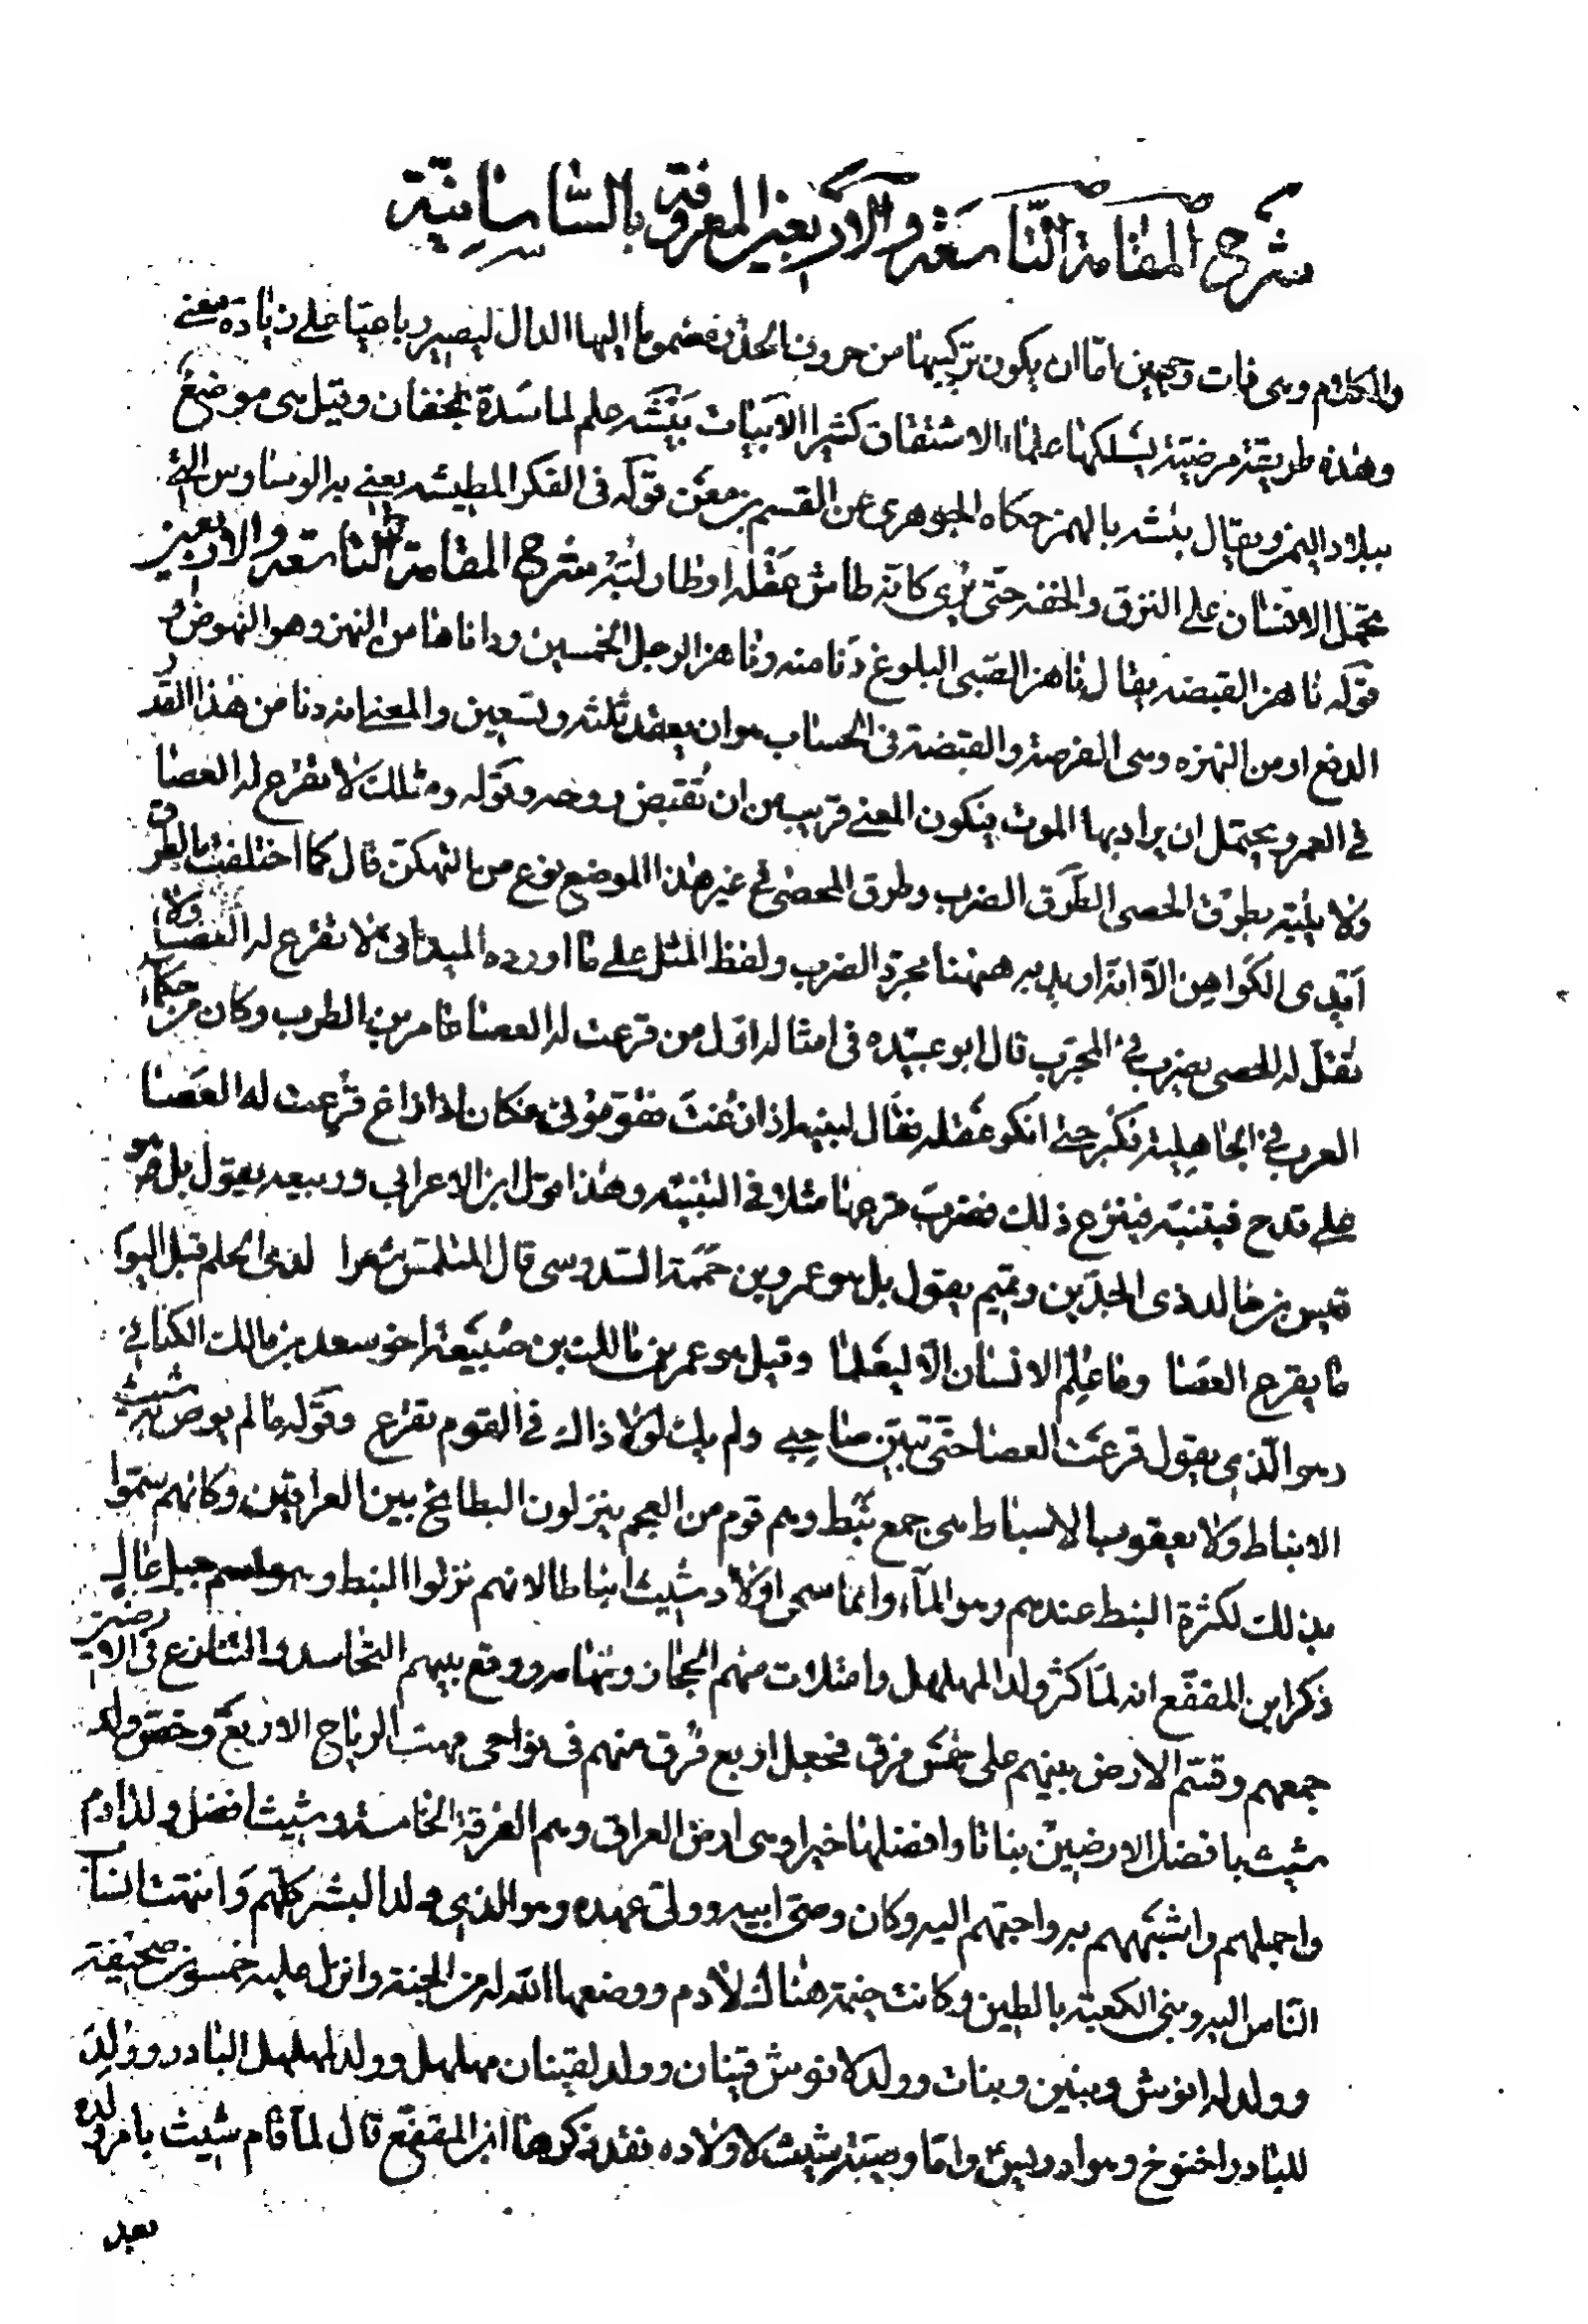 شرح المقامة التاسعة والاربعين المعروفة بالساسانية
والكلام وهى ذات وجهين امّا ان يكون تركيبها من حروف الحذ مضموما اليها الدال ليصير رباعيّا على زيادة معنى
وهذه طريقة مرضيّة يسلكها علماء الاشتقاق كثيرا الابيات بيشه علم لماسدة بخفان وقيل هى موضع
ببلاد اليمن ويقال بئشه بالهمز حكاه الجوهرى عن القسم بن معن قوله فى الفكر المطيشه يعنى به الوساوس التى
تحمل الانسان على النزق والخفه حتى يُرى كانّه طاش عقله او طار لبّه شرح المقامة التاسعه والاربعين
قوله ناهز القبضه يقال ناهز الصبى البلوغ دنا منه وناهز الرجل الخمسين وداناها من النهز وهو النهوض و
الدفع او من النهزه وهى الفرصة والقبضة فى الحساب هو ان يعقد ثلثه وتسعين والمعنى انه دنا من هذا القدر
فى العمر ويحتمل ان يراد بها الموت فيكون المعنى قريب من ان تُقبض روحه وقوله ومثلك لا تقرع له العصا
ولا ينبّه بطرق الحصى الطَرق الضرب وطرق الحصى فى غير هذا الموضع نوع من التهكّن قال كما اختلفت بالطرق
ايدى الكواهن الّا انّه اريد به ههنا مجرّد الضرب ولفظ المثل على ما اورده الميدانى لا تقرع له العصا ولا
تقلقل له الحصى يضرب فى المجرّب قال ابو عبيده فى امثاله اوّل من قرعت له العصا عامر بن الظرب وكان من حكماء
العرب فى الجاهلية فكبر حتى انكر عقله فقال لبنيه اذا زغت فقوّمونى فكان اذا زاغ قُرعت له العصا
على قدح فيتنبّه فينزع ذلك فضرب قرعها مثلا فى التنبيه وهذا قول ابن الاعرابى وربيعه يقول بل هو
قيس بن خالد ذى الجدّين وتميم يقول بل هو عمرو بن حممة السدوسى قال المتلمّس شعرا لذى الحلم قبل اليوم
ما يقرع العصا وما عُلّم الانسان الّا ليعلما وقيل هو عمرو بن مالك بن ضُبيعة اخو سعد بن مالك الكنانى
وهو الّذى يقول قرعت العصا حتى تبيّن صاحبى ولم يك لولا ذاك فى القوم تقرع وقوله ما لم يوص به شيث
الانباط ولا يعقوب الاسباط هى جمع نبط وهم قوم من العجم ينزلون البطائح بين العراقين وكانهم سمّوا
بذلك لكثرة النبط عندهم وهو الماء وانما سمى اولاد شيث انباطا لانهم نزلوا النبط وهو اسم جبل عال
ذكر ابن المقفّع انه لمّا كثر ولد المهلهل وامتلات منهم الحجاز وتهامه ووقع بينهم التحاسد والتنازع فى الارضين
جمعهم وقسّم الارض بينهم على خمس فرق فجعل اربع فُرق منهم فى نواحى مهبّ الرياح الاربع وخصّ ولد
شيث بافضل الارضين نباتا وافضلها خيرا وهى ارض العراق وهم الفرقة الخامسة وشيث افضل ولد ادم
واجملهم واشبههم به واحبّهم اليه وكان وصىّ ابيه وولىّ عهده وهو الذى ولد البشر كلّهم وانتهت انساب
النّاس اليه وبنى الكعبة بالطين وكانت خيمة هناك لادم ووضعها الله له من الجنة وانزل عليه خمسون صحيفة
وولد له انوش وبنين وبنات وولد لانوش قينان وولد لقينان مهلهل وولد لمهلهل اليادر وولد
لليادر اخنوخ وهو ادريس وامّا وصيّة شيث لاولاده فقد ذكرها ابن المقفّع قال لمّا قام شيث بامر ولده
بعد